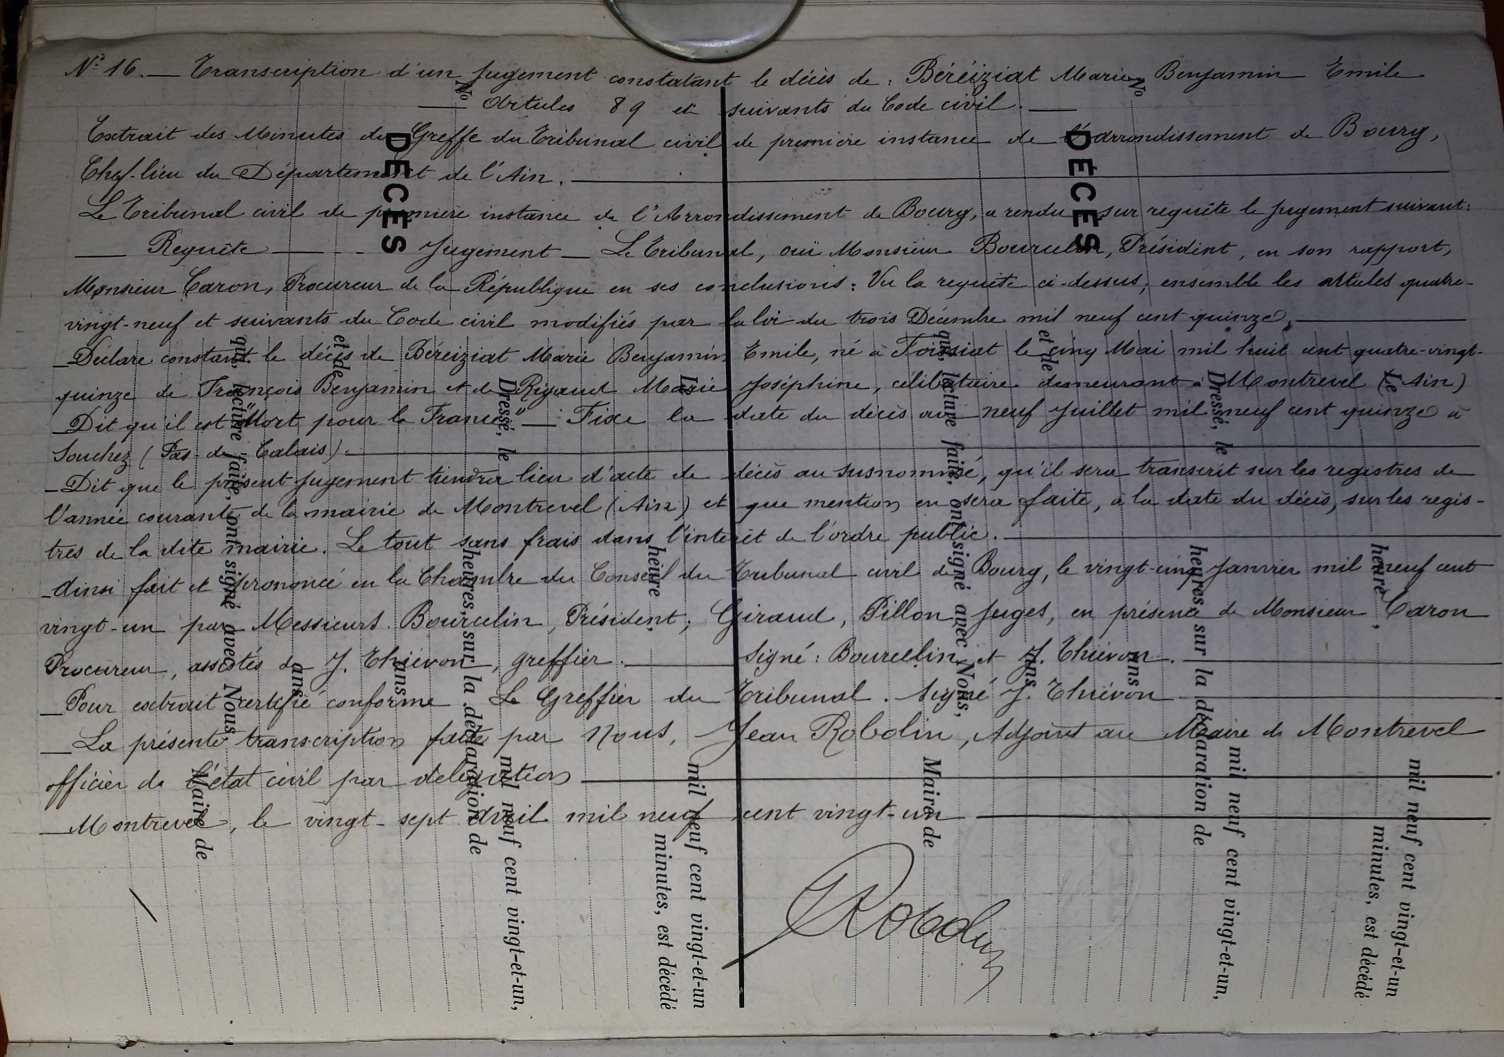 N° 16. — Transcription d'un jugement constatant le décès de : Béréiziat Marie Benjamin Emile
— Articles 89 et suivants du Code civil. —
Extrait des Minutes du Greffe du Tribunal civil de première instance de l'arrondissement de Bourg,
Chef-lieu du Département de l'Ain.
Le Tribunal civil de première instance de l'Arrondissement de Bourg, a rendu sur requête le jugement suivant :
— Requête — Jugement — Le Tribunal, ouï Monsieur Bourcelin, Président, en son rapport,
Monsieur Caron, Procureur de la République en ses conclusions : Vu la requête ci-dessus, ensemble les articles quatre-
vingt-neuf et suivants du Code civil modifiés par la loi du trois Décembre mil neuf cent quinze,
_Déclare constant le décès de Béreiziat Marie Benjamin Emile, né à Foissiat le cinq Mai mil huit cent quatre-vingt-
quinze de François Benjamin et de Rigaud Marie Joséphine, célibataire demeurant à Montrevel (Ain)
_Dit qu'il est "Mort pour la France" — Fixe la date du décès au neuf Juillet mil neuf cent quinze à
Souchez (Pas-de-Calais)
_Dit que le présent jugement tiendra lieu d'acte de décès au susnommé, qu'il sera transcrit sur les registres de
l'année courante de la mairie de Montrevel (Ain) et que mention en sera faite, à la date du décès, sur les regis-
tres de la dite mairie. Le tout sans frais dans l'intérêt de l'ordre public.
_Ainsi fait et prononcé en la Chambre du Conseil du Tribunal civil de Bourg, le vingt-cinq Janvier mil neuf cent
vingt-un par Messieurs Bourcelin, Président ; Giraud, Pillon, juges, en présence de Monsieur Caron
Procureur, assistés de J. Thiévon, greffier. — Signé : Bourcelin et J. Thiévon.
_Pour extrait certifié conforme Le Greffier du Tribunal. Signé J. Thiévon
_La présente transcription faite par Nous, Jean Robdin, Adjoint au Maire de Montrevel
officier de l'état civil par délégation
_Montrevel, le vingt-sept Avril mil neuf cent vingt-un
Robdin
N°
DÉCÈS
Le
mil neuf cent vingt-et-un
heure
minutes, est décédé
et de
Dressé, le
mil neuf cent vingt-et-un,
heures, sur la déclaration de
ans
ans
que, lecture faite, ont signé avec Nous,
Maire de
N°
DÉCÈS
Le
mil neuf cent vingt-et-un
heure
minutes, est décédé
et de
Dressé, le
mil neuf cent vingt-et-un,
heures, sur la déclaration de
ans
ans
que, lecture faite, ont signé avec Nous,
Maire de